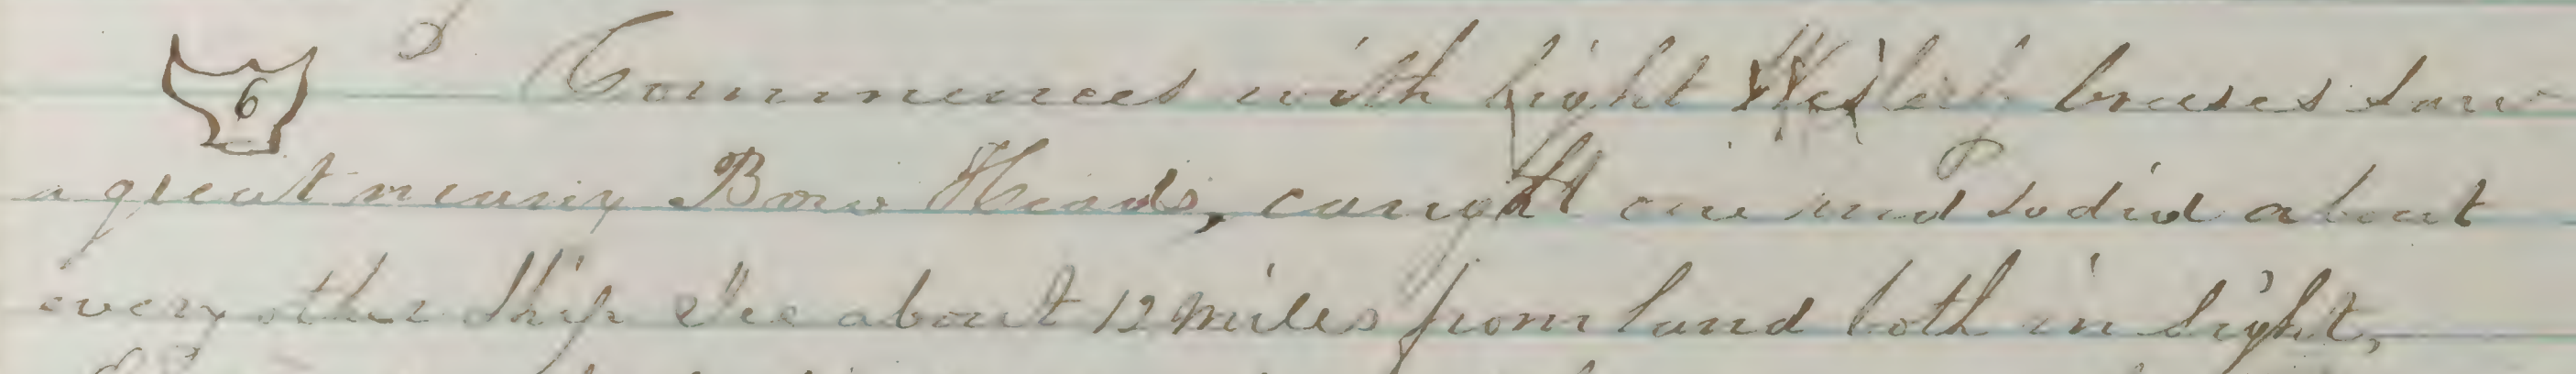 6 Commences with light Westerly breeses saw
a great many Bow Heads, caught one and so did about
every other Ship Ice about 12 miles from land both in sight,